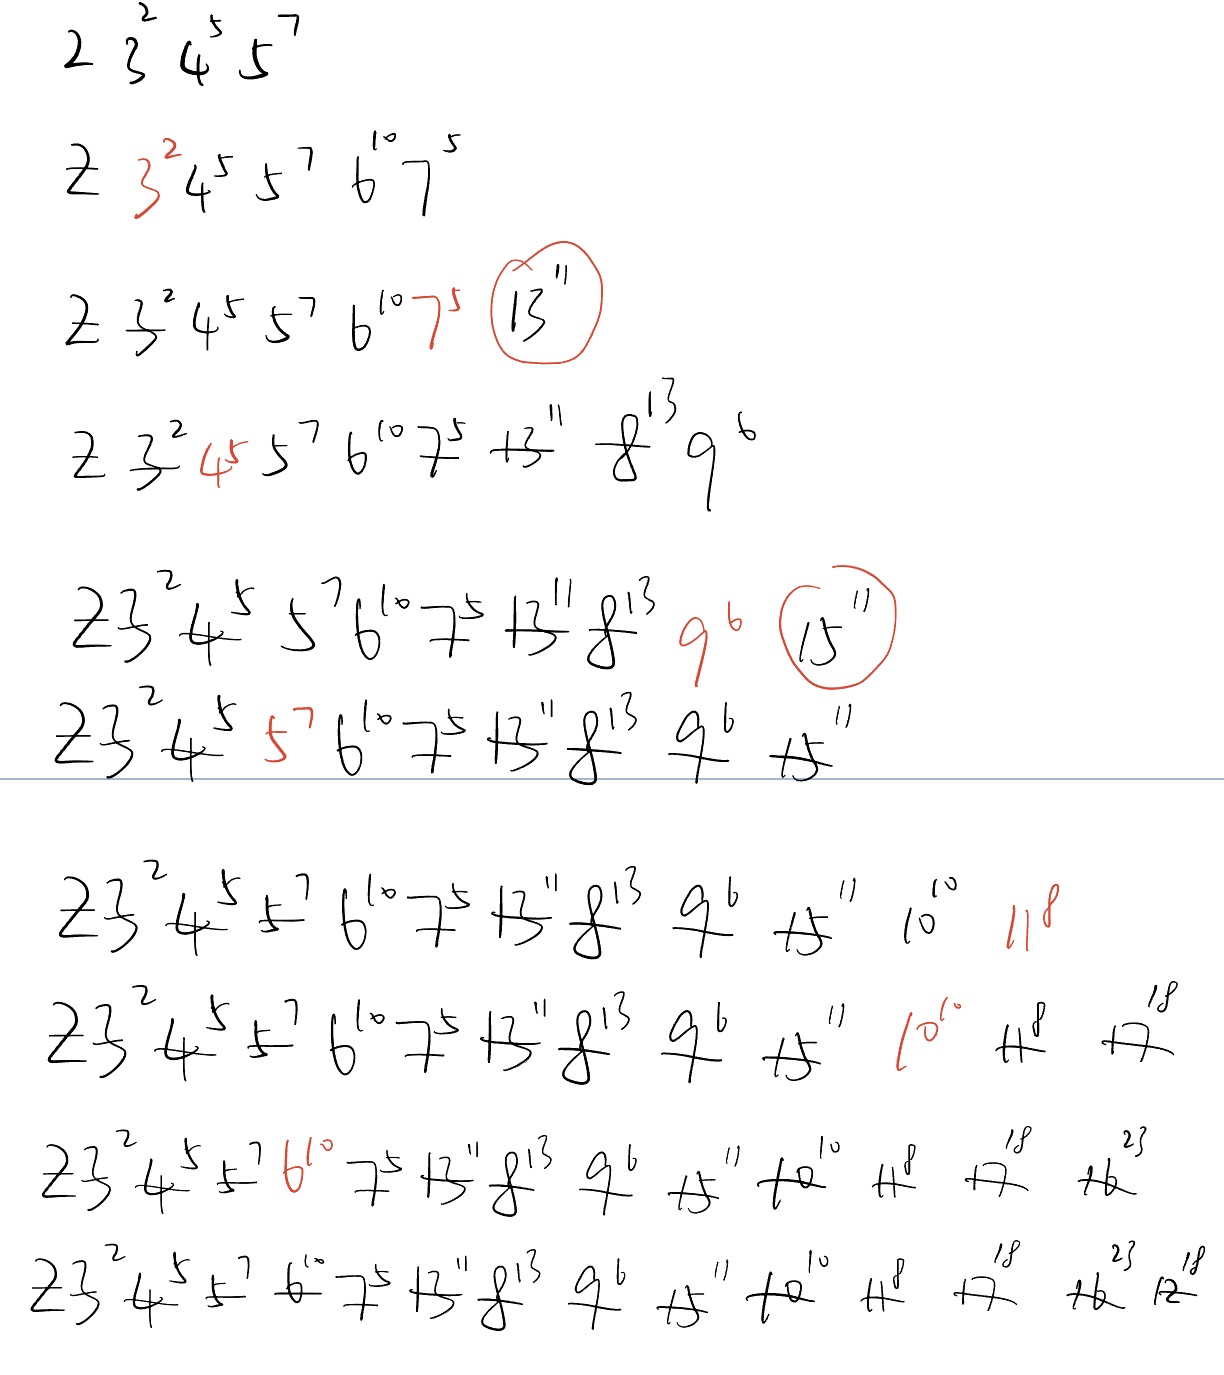 2 3² 4⁵ 5⁷
2 3² 4⁵ 5⁷ 6¹⁰ 7⁵
2 3² 4⁵ 5⁷ 6¹⁰ 7⁵ 13¹¹
2 3² 4⁵ 5⁷ 6¹⁰ 7⁵ 13¹¹ 8¹³ 9⁶
2 3² 4⁵ 5⁷ 6¹⁰ 7⁵ 13¹¹ 8¹³ 9⁶ 15¹¹
2 3² 4⁵ 5⁷ 6¹⁰ 7⁵ 13¹¹ 8¹³ 9⁶ 15¹¹
2 3² 4⁵ 5⁷ 6¹⁰ 7⁵ 13¹¹ 8¹³ 9⁶ 15¹¹ 10¹⁰ 11⁸
2 3² 4⁵ 5⁷ 6¹⁰ 7⁵ 13¹¹ 8¹³ 9⁶ 15¹¹ 10¹⁰ 11⁸ 17¹⁸
2 3² 4⁵ 5⁷ 6¹⁰ 7⁵ 13¹¹ 8¹³ 9⁶ 15¹¹ 10¹⁰ 11⁸ 17¹⁸ 16²³
2 3² 4⁵ 5⁷ 6¹⁰ 7⁵ 13¹¹ 8¹³ 9⁶ 15¹¹ 10¹⁰ 11⁸ 17¹⁸ 16²³ 12¹⁸